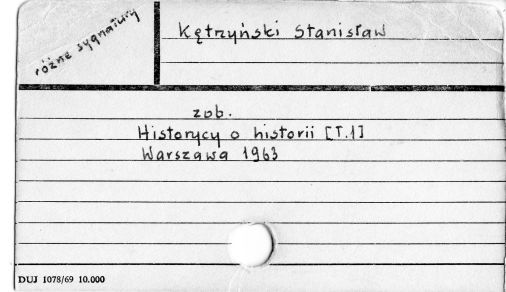 różne sygnatury
Kętrzyński Stanisław
zob.
Historycy o historii [T.1]
Warszawa 1963
DUJ 1078/69 10.000